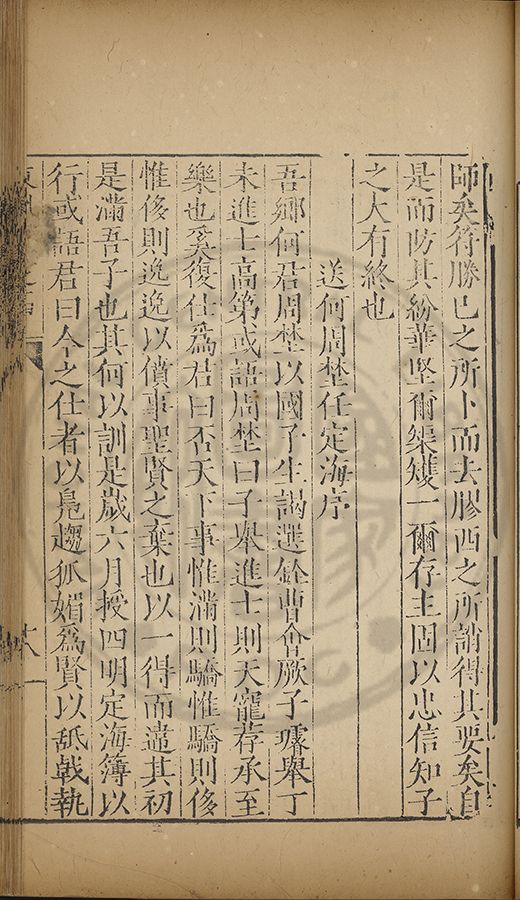 師矣符勝已之所卜而去膠西之所誚得其要矣自
是而防其紛華堅爾榘矱一爾存主固以忠信知子
之大有終也
送何周埜任定海序
吾鄉何君周埜以國子生謁選銓曹會厥子璿舉丁
未進士高第或語周埜曰子舉進士則天寵荐承至
樂也奚復仕爲君曰否天下事惟滿則驕惟驕則侈
惟侈則逸逸以僨事聖賢之棄也以一得而遣其初
是滿吾子也其何以訓是歲六月授四明定海簿以
行或語君曰今之仕者以鳧趨狐媚爲賢以舐㦸執